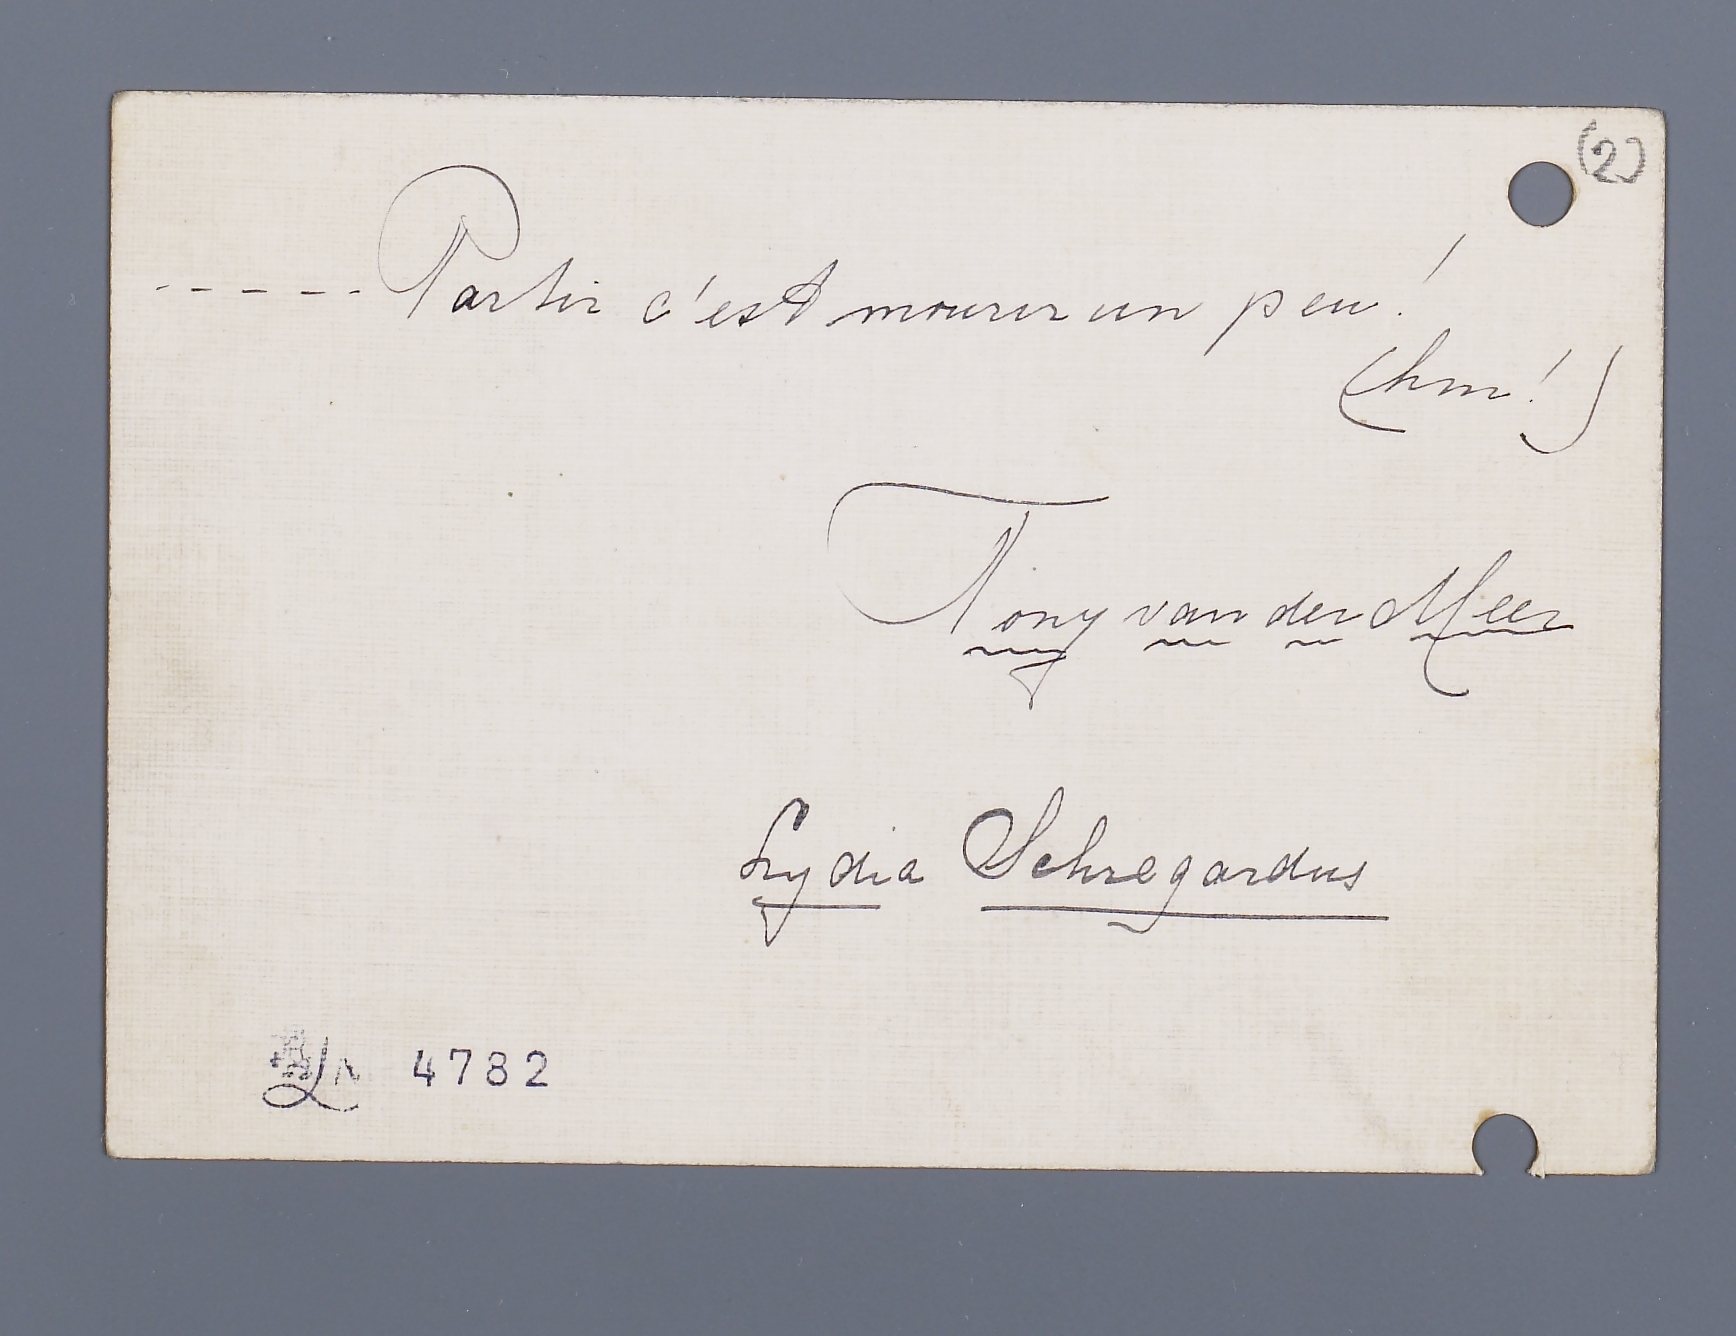 (2)
----- Partir c'est mourir un peu!
(hm!)
Tony van der Meer
Lydia Schregardus
4782